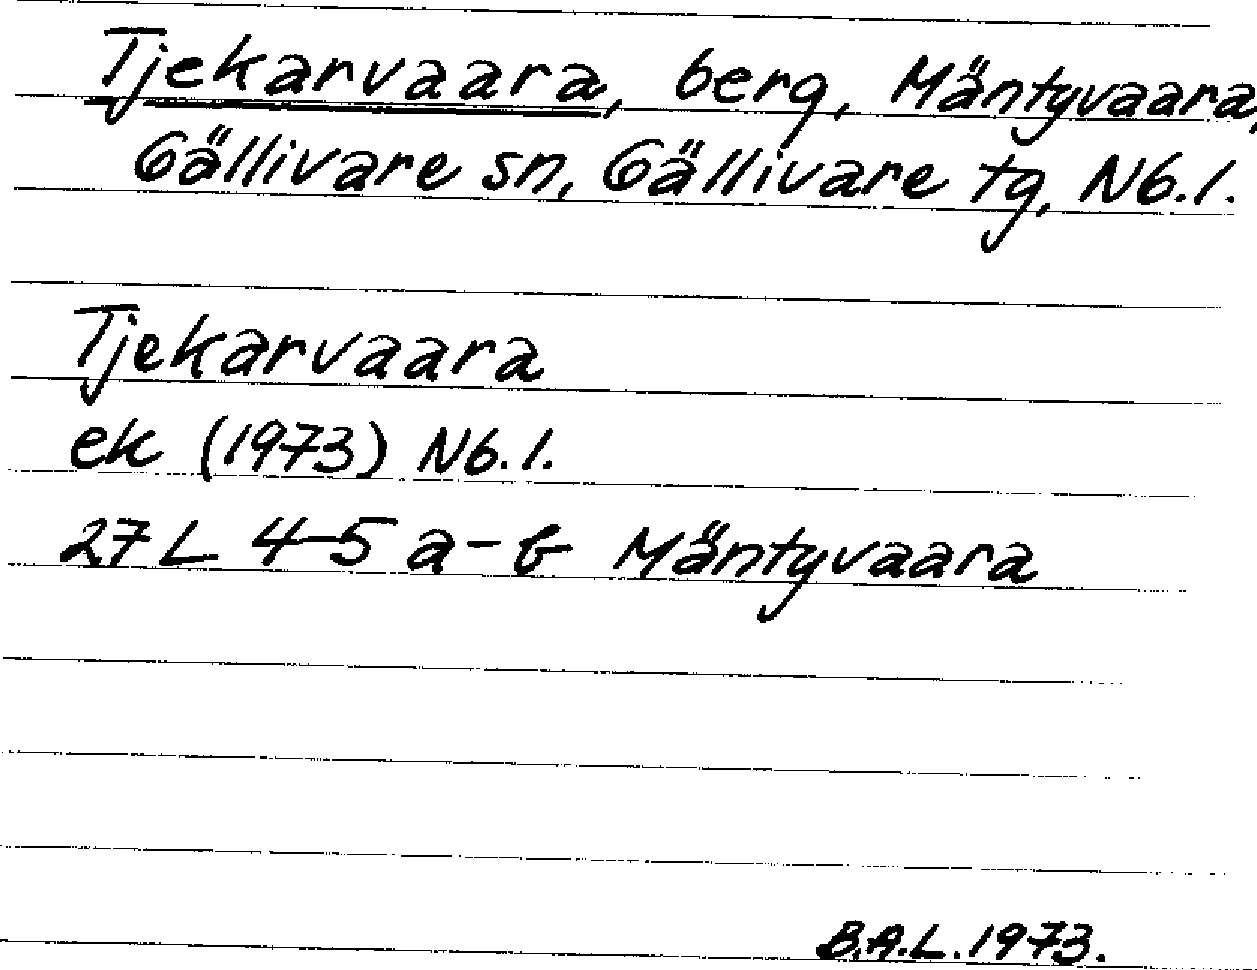 Tjekarvaara, berg, Mäntyvaara,
Gällivare sn, Gällivare tg, Nb.l.
Tjekarvaara
ek (1973) Nb.l.
27 L 4-5 a-b Mäntyvaara
B.A.L. 1973.